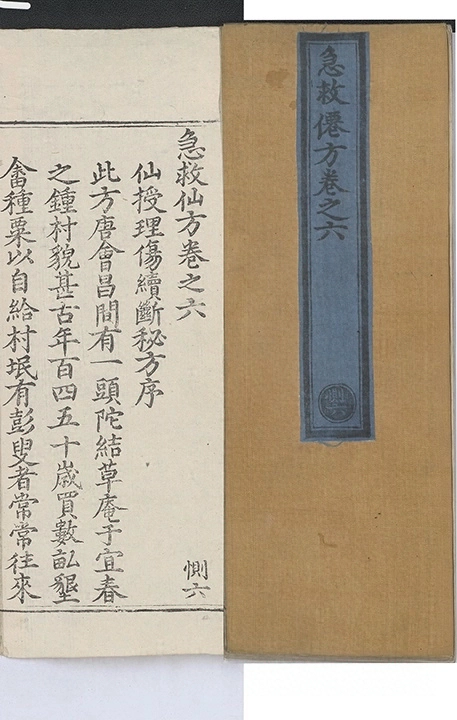 急救僊方卷之六
惻六
急救仙方卷之六
惻六
仙授理傷續斷秘方序
此方唐會昌間有一頭陀結草庵于宜春
之鍾村貌甚古年百四五十歲買數畝墾
畬種粟以自給村垊有彭叟者常常往來